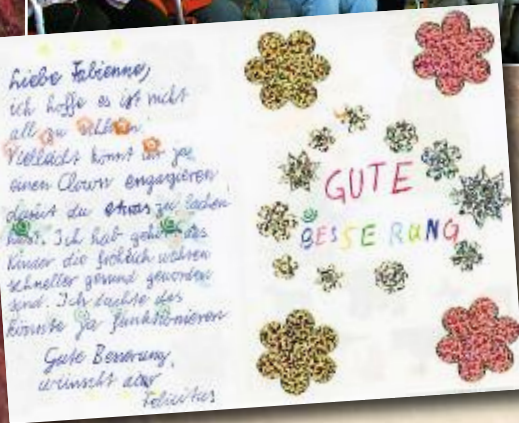 Liebe Fabienne,
ich hoffe es ist nicht
all zu schlimm.
Vielleicht könnt ihr ja
einen Clown engagieren
damit du etwas zu lachen
hast. Ich hab gehört das
Kinder die fröhlich wahren
schneller gesund geworden
sind. Ich dachte das
könnte ja funktionieren
Gute Besserung,
wünscht
Felicitas
GUTE
BESSERUNG